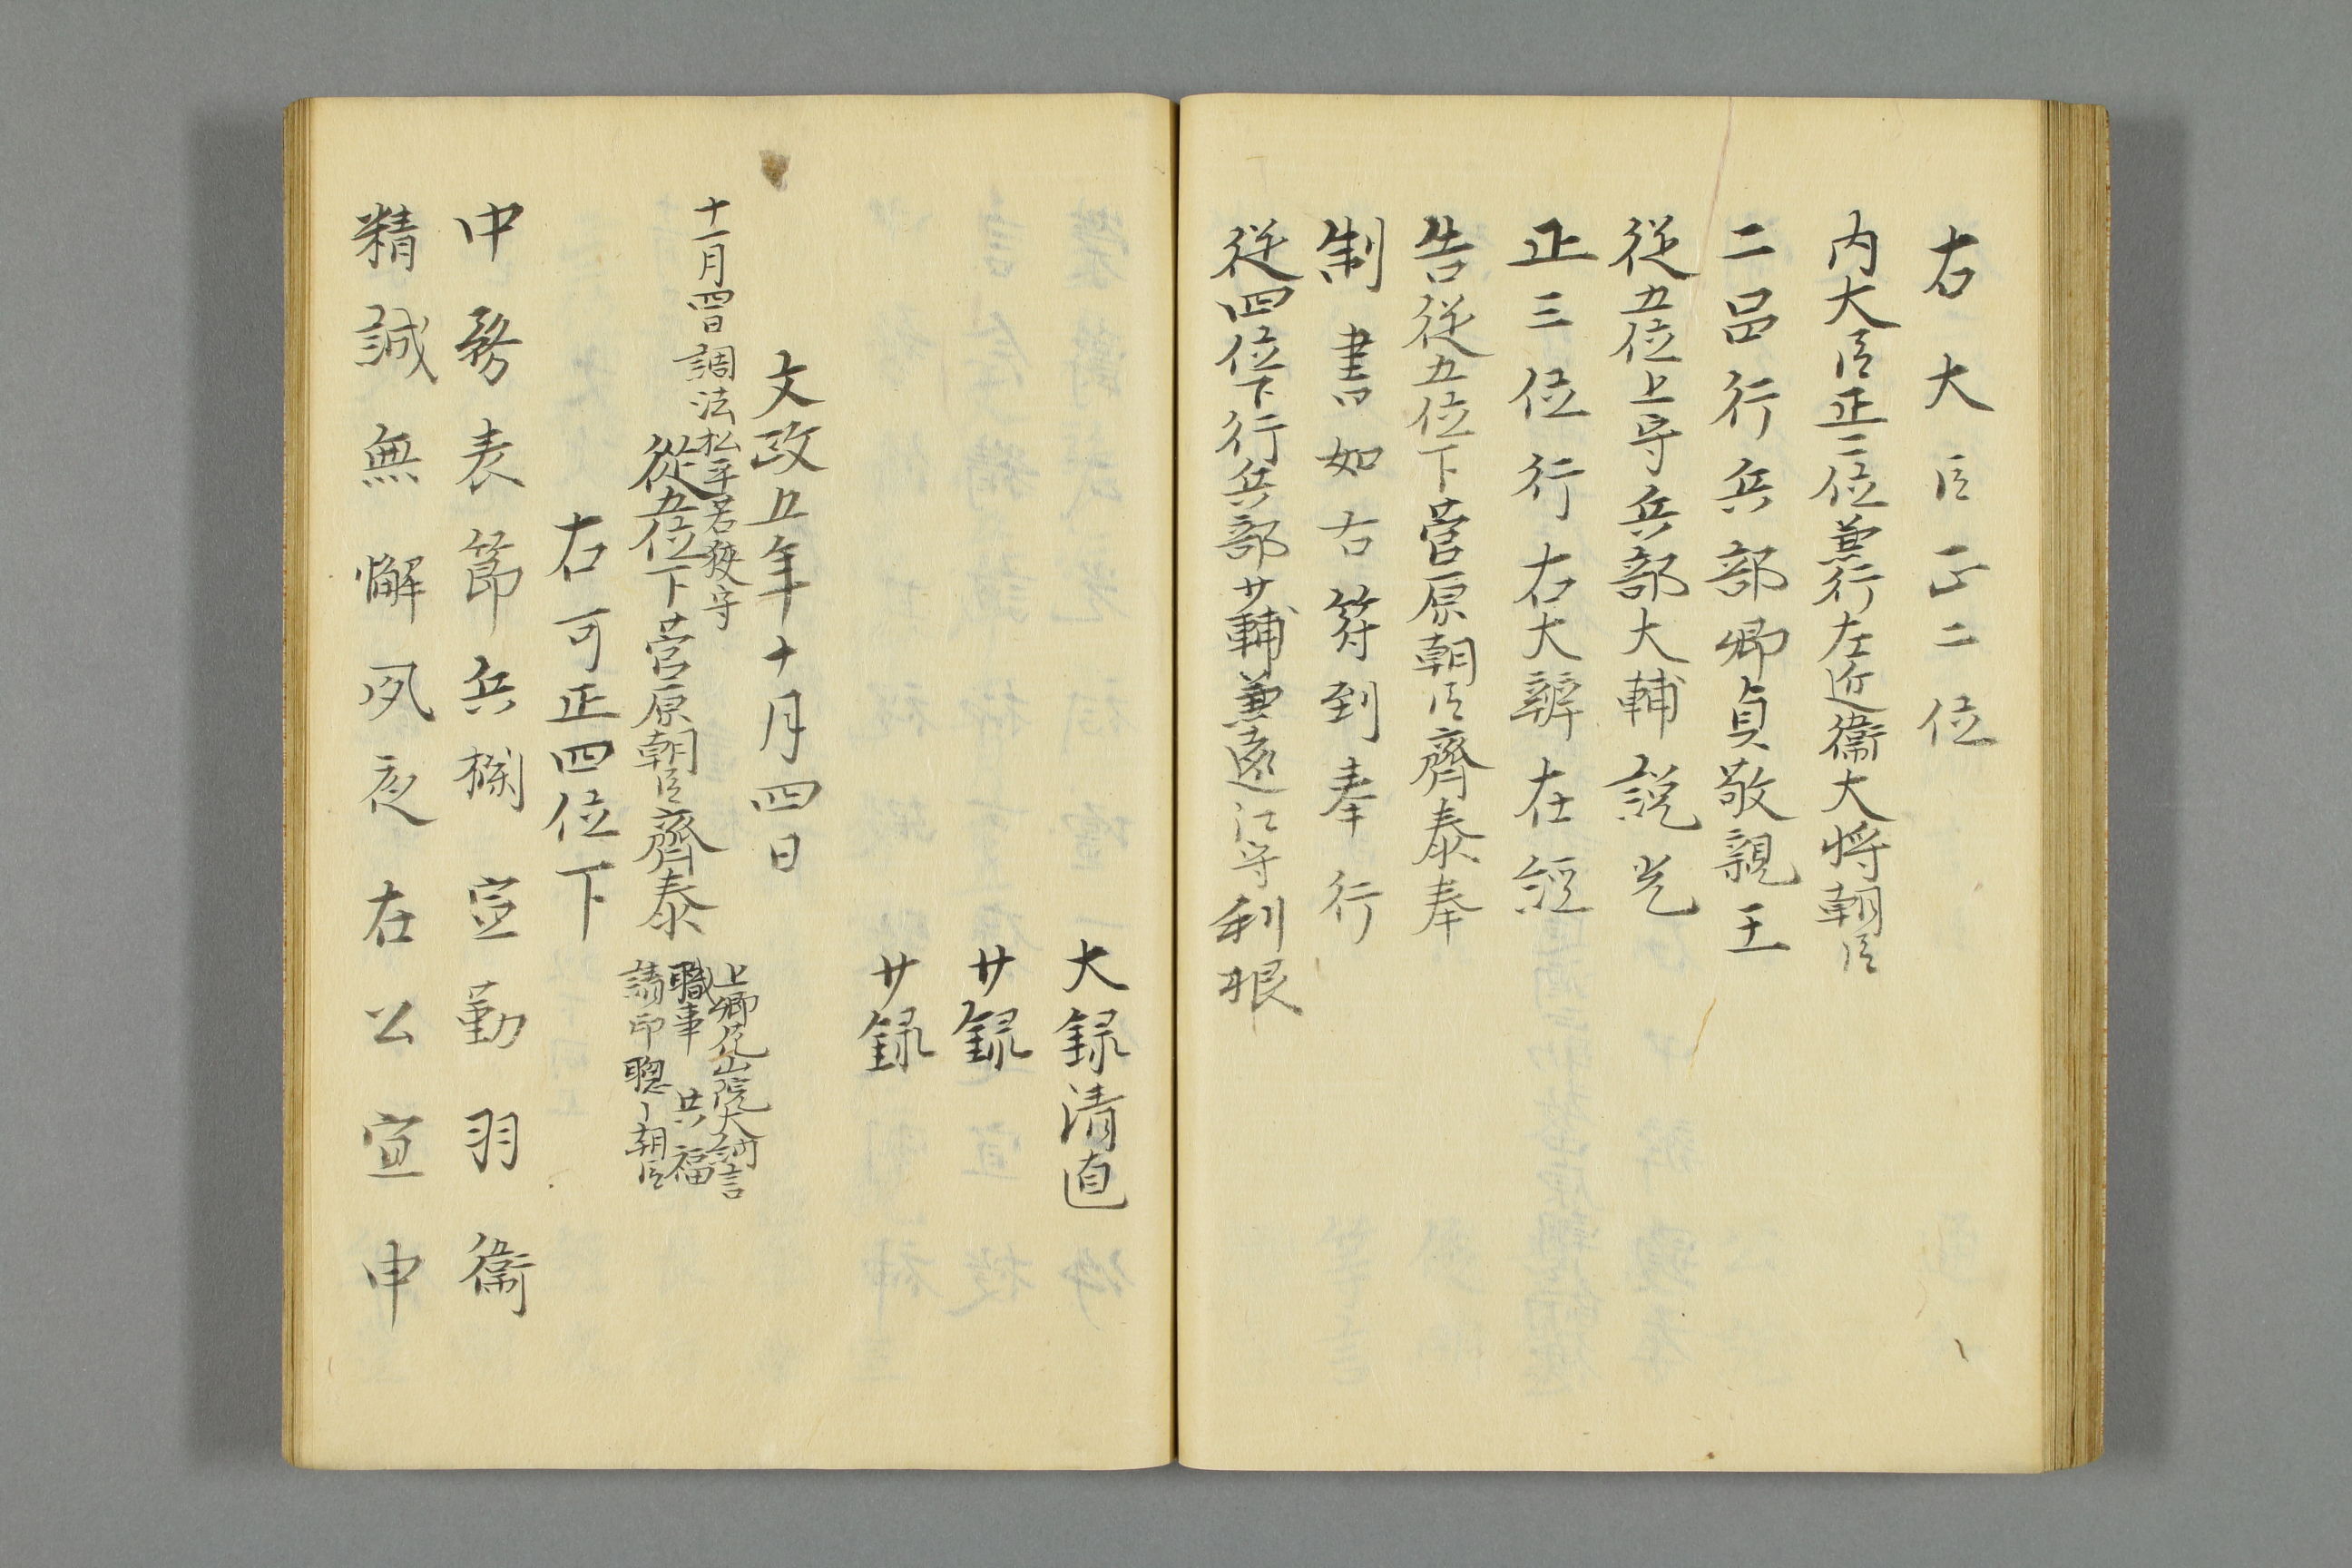 右大臣正二位
内大臣正二位兼行左近衞大将朝臣
二品行兵部卿貞敬親王
従五位上守兵部大輔説光
正三位行右大辨在經
告従五位下菅原朝臣齊泰奉
制書如右符到奉行
従四位下行兵部少輔兼遠江守利泿
大録清直
少録
少録
文政五年十月四日
十一月四日調法松平若狭守
従五位下菅原朝臣齊泰
上卿花山院大納言
職事 共福
請印聰長朝臣
右可正四位下
中務表節兵欄宣勤羽衞
精誠無懈夙夜在公宣申